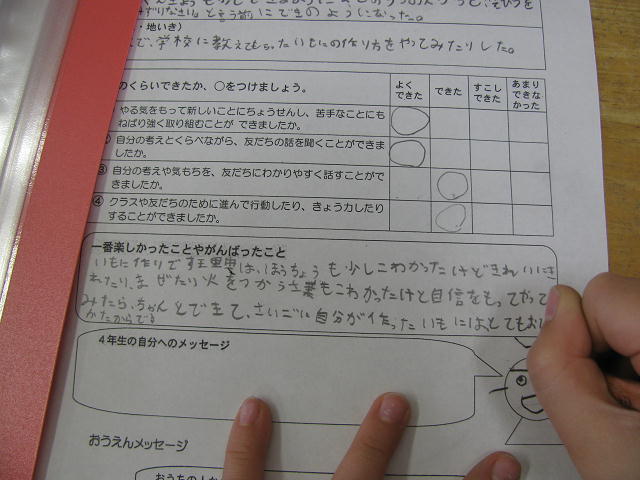 ・地いき)
で、学校に教えてもらったいもにの作り方をやってみたりした。
のくらいできたか、○をつけましょう。
よくできた
できた
すこしできた
あまりできなかった
やる気をもって新しいことにちょうせんし、苦手なことにも
ねばり強く取り組むことが できましたか。
自分の考えとくらべながら、友だちの話を聞くことができま
したか。
③ 自分の考えや気もちを、友だちにわかりやすく話すことがで
きましたか。
④ クラスや友だちのために進んで行動したり、きょう力したり
することができましたか。
一番楽しかったことやがんばったこと
いもに作りで
は、ほうちょうも少しこわかったけどきれいにき
れたり、まぜたり火をつかう
もこわかったけど自信をもってやって
みたら、ちゃんとできて、さいごに自分が作ったいもにはとてもおい
かたからです
4年生の自分へのメッセージ
おうえんメッセージ